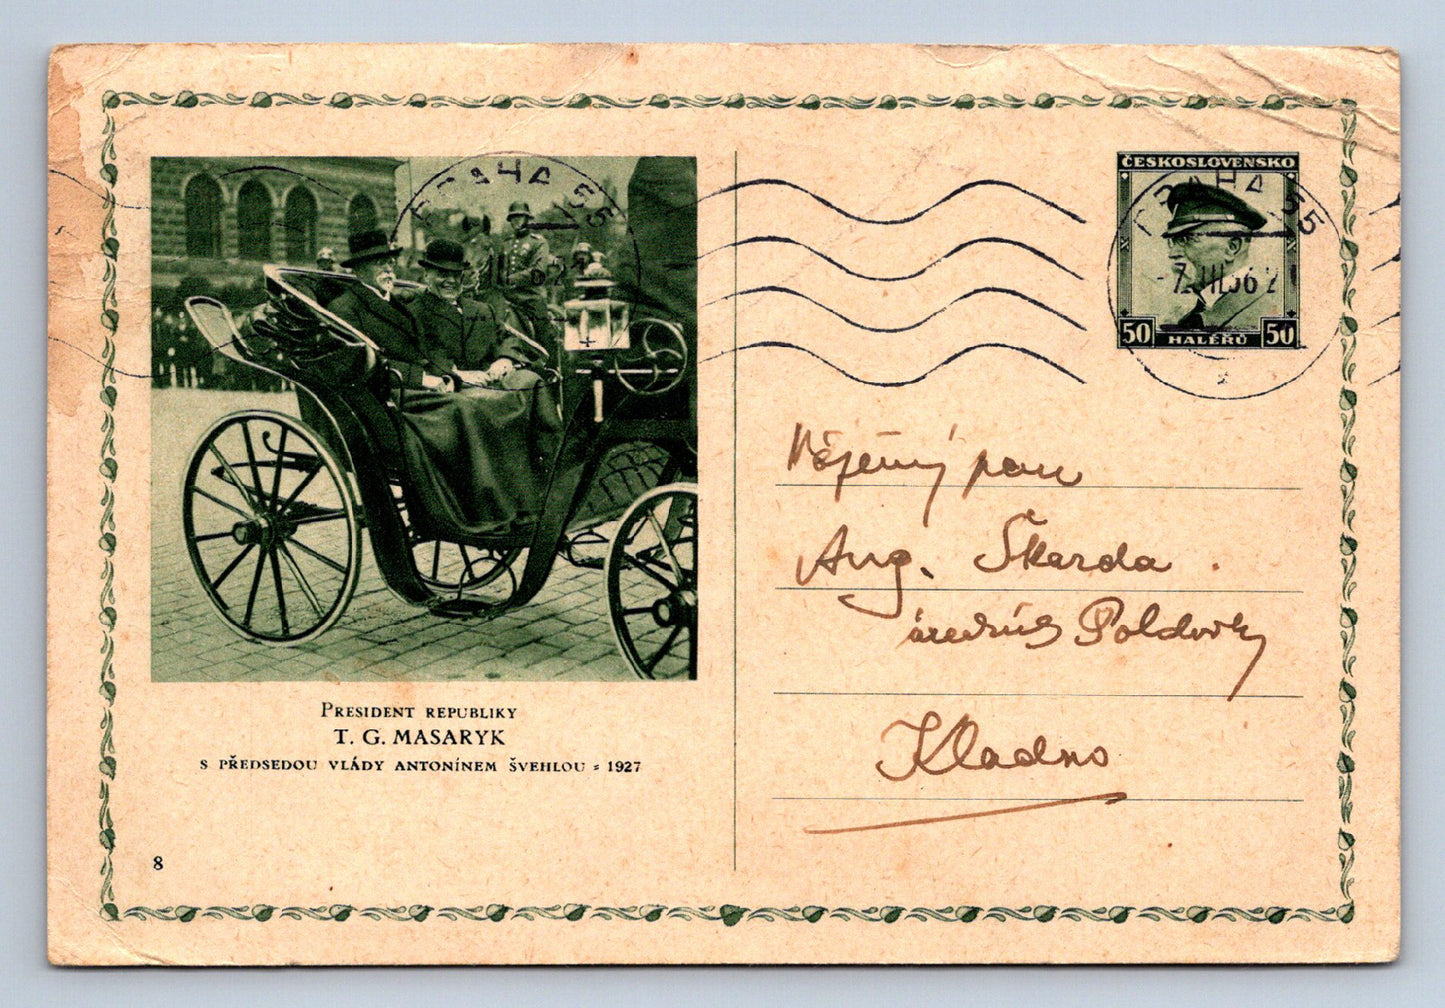 PRAHA 55
ČESKOSLOVENSKO
PRAHA 55
-7.III.36 21
50 HALÉŘŮ 50
Vážený pan
Aug. Škarda.
úředník Poldovky
Kladno
PRESIDENT REPUBLIKY
T. G. MASARYK
S PŘEDSEDOU VLÁDY ANTONÍNEM ŠVEHLOU = 1927
8